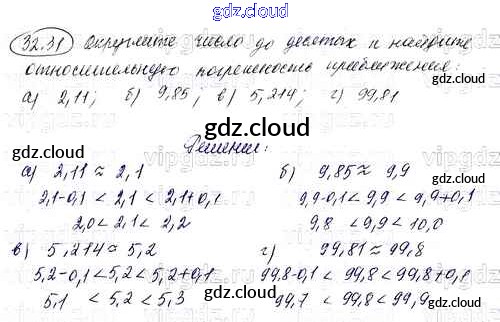 gdz.cloud
32.31 Округлите число до десятых и найдите
относительную погрешность приближения:
а) 2,11; б) 9,85; в) 5,214; г) 99,81
gdz.cloud
Решение:
а) 2,11 ≈ 2,1 б) 9,85 ≈ 9,9
2,1-0,1 < 2,1 < 2,1+0,1 9,9-0,1 < 9,9 < 9,9+0,1
2,0 < 2,1 < 2,2 9,8 < 9,9 < 10,0
gdz.cloud gdz.cloud
в) 5,214 ≈ 5,2 г) 99,81 ≈ 99,8
5,2-0,1 < 5,2 < 5,2+0,1 99,8-0,1 < 99,8 < 99,8+0,1
5,1 < 5,2 < 5,3 99,7 < 99,8 < 99,9
gdz.cloud